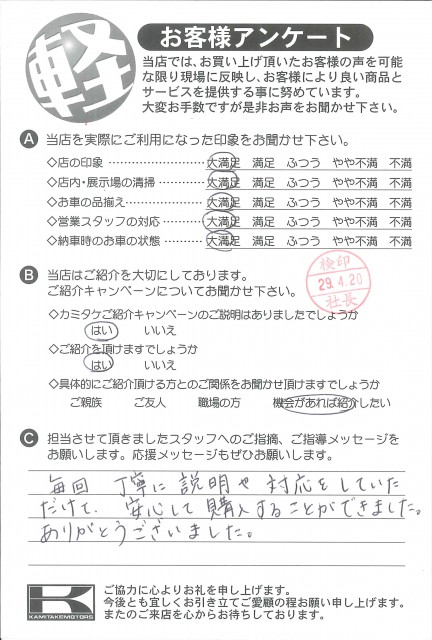 軽
お客様アンケート
当店では、お買い上げ頂いたお客様の声を可能
な限り現場に反映し、お客様により良い商品と
サービスを提供する事に努めています。
大変お手数ですが是非お声をお聞かせ下さい。
A 当店を実際にご利用になった印象をお聞かせ下さい。
◇店の印象 ‥‥‥‥‥‥ 大満足 満足 ふつう やや不満 不満
◇店内・展示場の清掃‥‥‥ 大満足 満足 ふつう やや不満 不満
◇お車の品揃え‥‥‥‥‥ 大満足 満足 ふつう やや不満 不満
◇営業スタッフの対応‥‥‥ 大満足 満足 ふつう やや不満 不満
◇納車時のお車の状態‥‥‥ 大満足 満足 ふつう やや不満 不満
B 当店はご紹介を大切にしてあります。
ご紹介キャンペーンについてお聞かせ下さい。
検印
29.4.20
社長
◇カミタケご紹介キャンペーンのご説明はありましたでしょうか
はい いいえ
◇ご紹介を頂けますでしょうか
はい いいえ
◇具体的にご紹介頂ける方とのご関係をお聞かせ頂けますでしょうか
ご親族 ご友人 職場の方 機会があれば紹介したい
C 担当させて頂きましたスタッフへのご指摘、ご指導メッセージを
お願いします。応援メッセージもぜひお願いします。
毎回 丁寧に説明や対応をしていた
だけて、安心して購入することができました。
ありがとうございました。
K
KAMITAKEMOTORS
ご協力に心よりお礼を申し上げます。
今後とも宜しくお引き立てご愛顧の程お願い申し上げます。
またのご来店を心からお待ちしております。